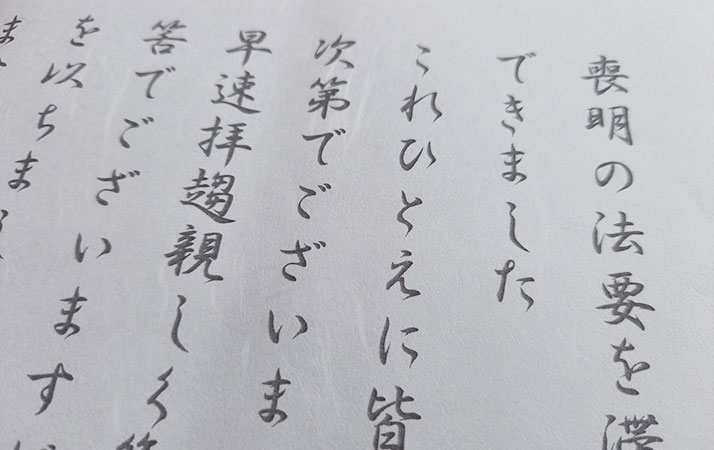 喪明の法要を滞
できました
これひとえに皆
次第でございま
早速拝趨親しく
筈でございます
を以ちま